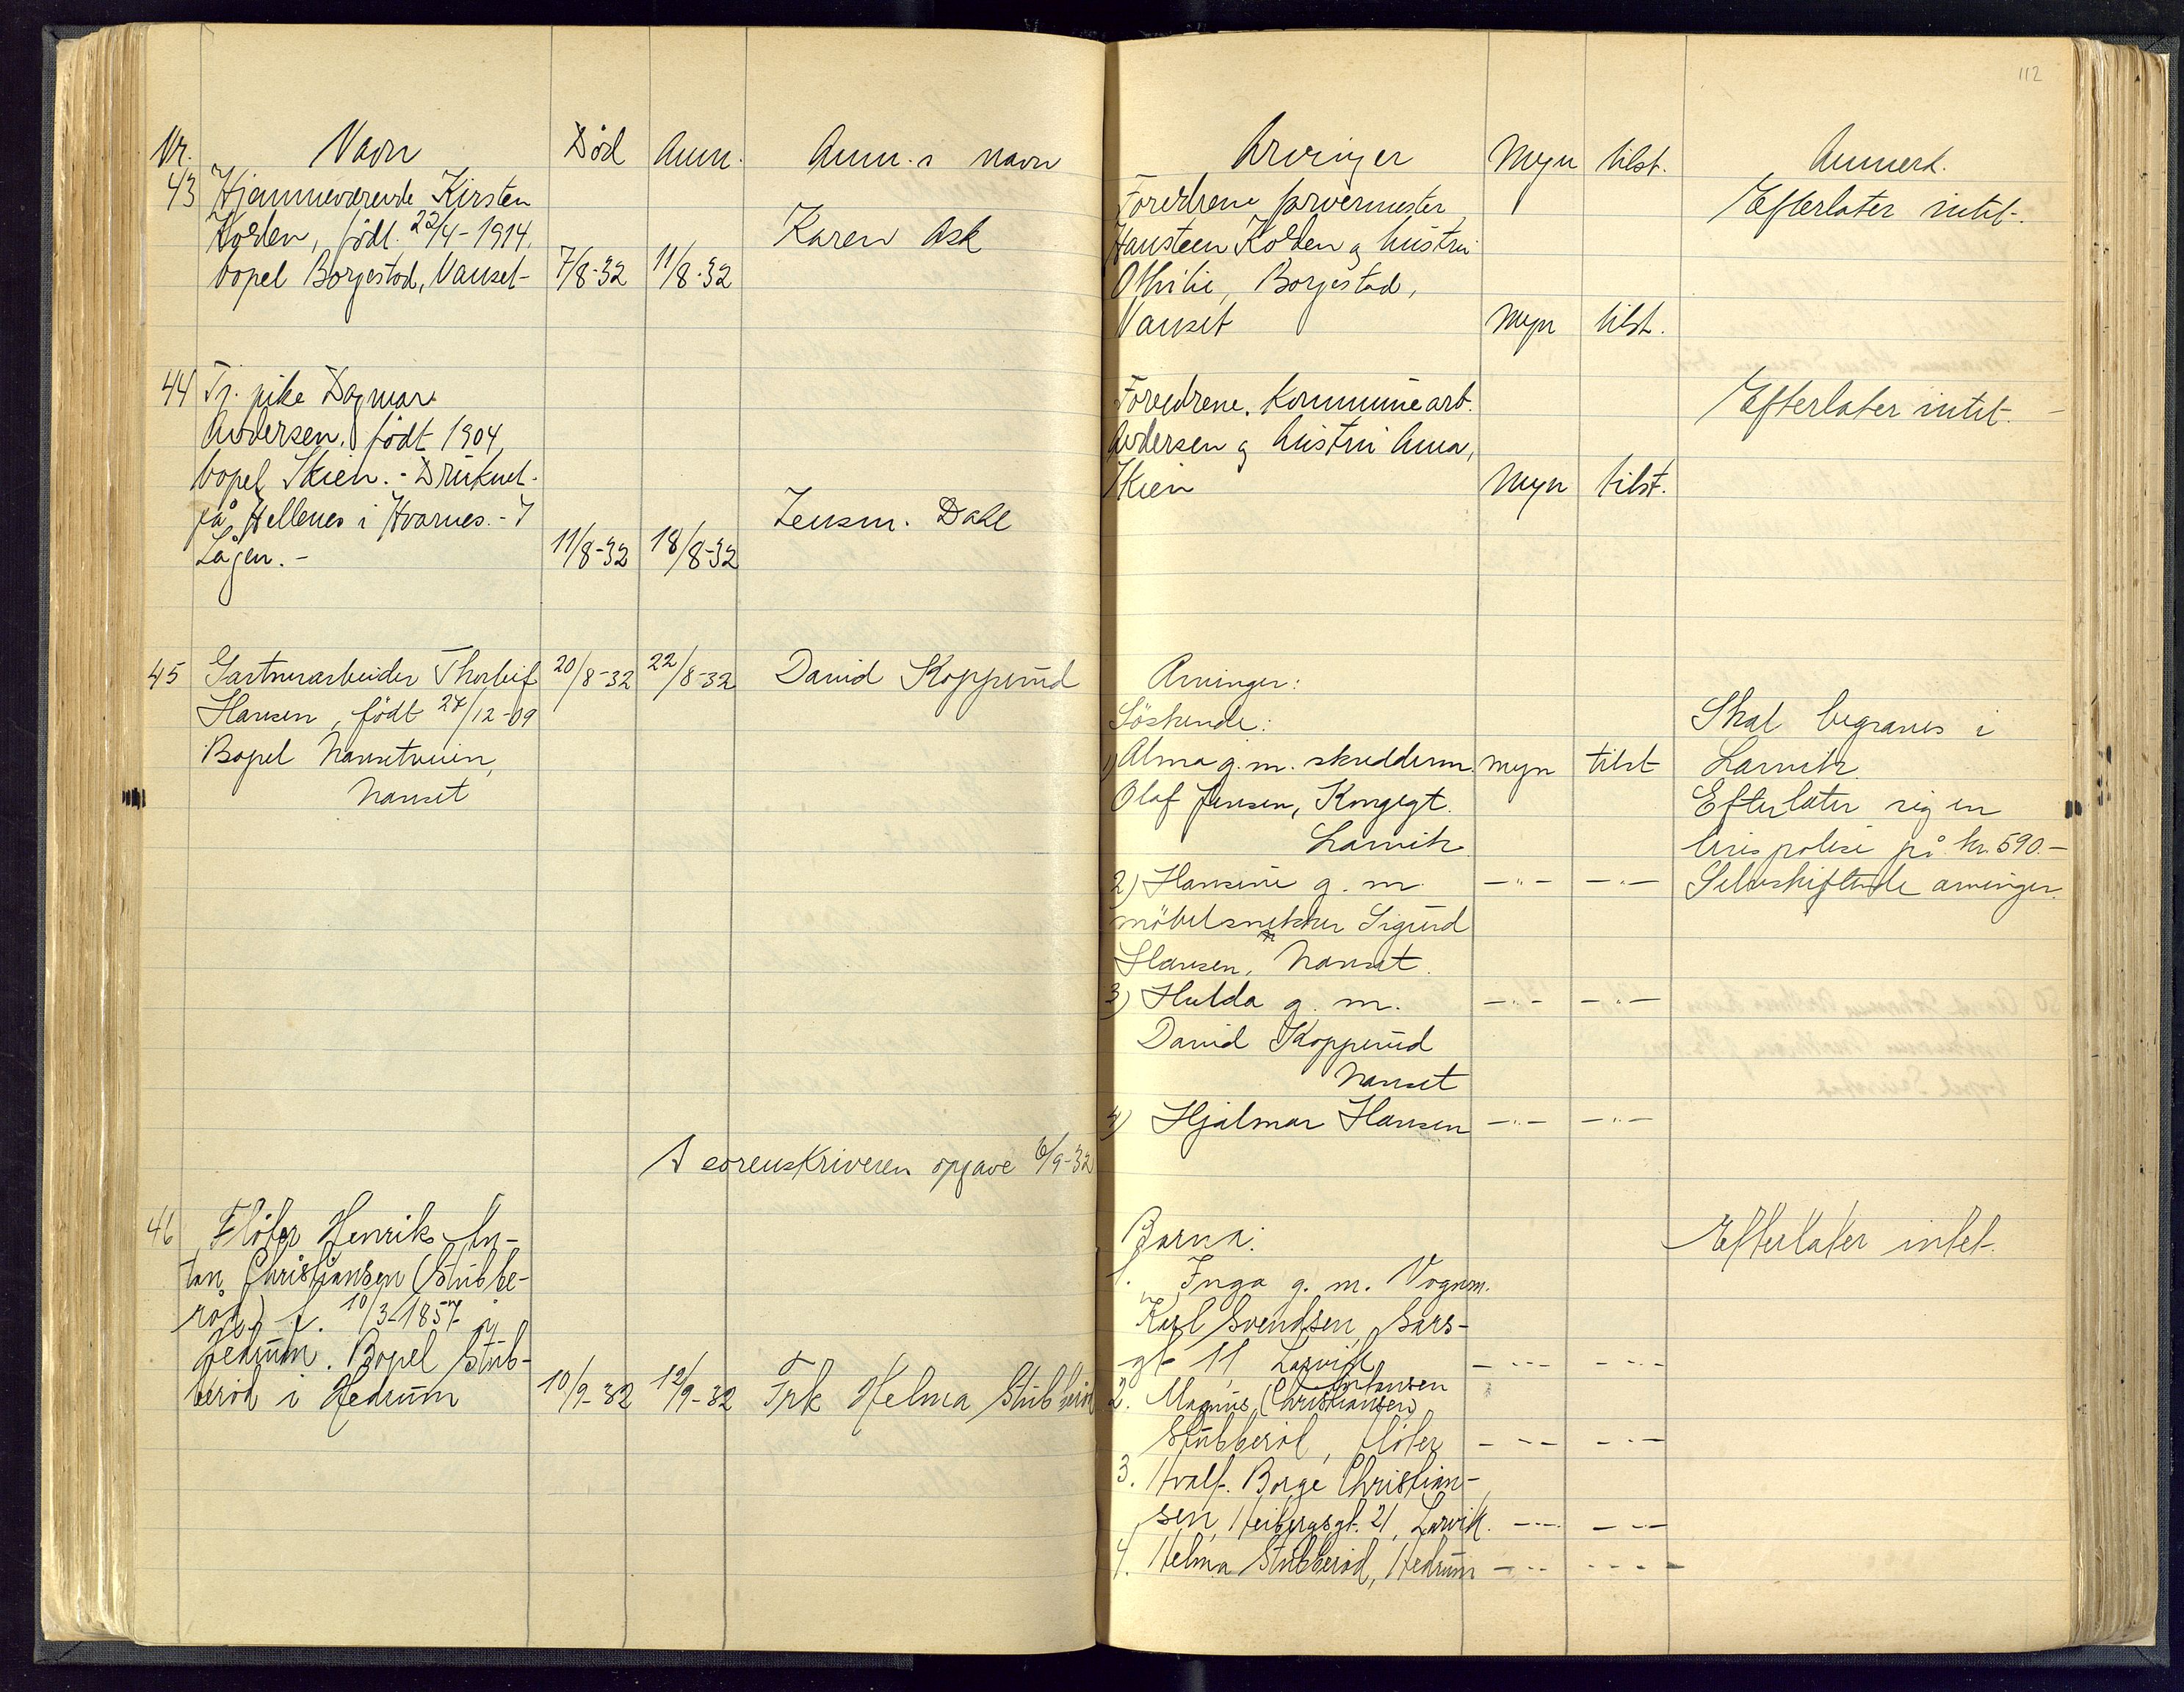 112
Nr. Navn Död Anm. Anm. s navn
43 Hjemmeværende Kirsten
Kolden, født 22/4-1914,
bopel Borgestad, Nanset- 7/8-32 11/8-32
Karen Ask
44 Tj. pike Dagmar
Andersen. født 1904,
bopel Skien. - Druknet-
på Hellenes i Hvarnes. - I
Lågen. - 11/8-32 18/8-32
Lensm. Dahl
45 Gartnerarbeider Thorleif 20/8-32 22/8-32 David Kopperud
Hansen, födt 27/12-09
Bopel Nansetveien,
Nanset
sorenskriveren opgave 6/9-32
46 Flöter Henrik An-
ton Christiansen (Stubbe-
röd) f. 10/3-1857 i
Hedrum. Bopel Stub-
beröd i Hedrum 10/9-32 12/9-32 Frk Helma Stubberöd
Arvinger Myn tilst. Anmerk.
Foreldrene farvermester Efterlater intet-.
Hansteen Kolden og hustru
Othilie, Borgestad,
Nanset Myn tilst.
Foreldrene, Kommunearb. Efterlater intet-.
Andersen og hustru Anna,
Skien Myn tilst.
Arvinger:
Söskende: Skal begraves i
1) Alma g.m. skredderm. myn tilst Larvik
Olaf Jensen, Kongegt. Efterlater sig en
Larvik livspolise på kr. 590.-
2) Hansine g. m. -"- -"- Selvskiftende arvinger.
möbelsnekker Sigurd
Hansen, Nanset.
3) Hulda g. m. -"- -"-
David Kopperud
Nanset
4) Hjalmar Hansen -"- -"-
Barna: Efterlater intet-
1. Inga g. m. Vognm.
Karl Svendsen, Gars-
gt- 11, Larvik -"- -"-
2. Magnus (Christiansen)
Stubberöd, flöter -"- -"-
3. Hvalf. Borge Christian-
sen, Heibergsgt. 21, Larvik. -"- -"-
4. Helma Stubberöd, Hedrum -"- -"-